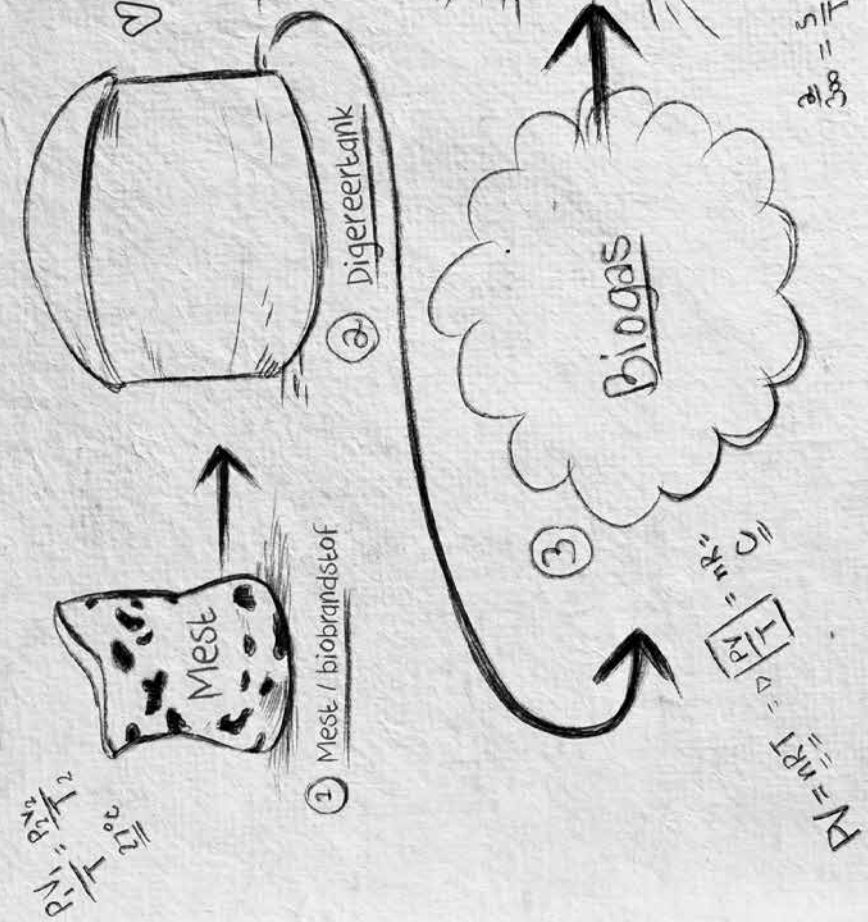 P₁V₁/T = P₂V₂/T₂
27°C
Mest
1 Mest / biobrandstof
2 Digereertank
3
Biogas
PV = nRT => PV/T = nR = C